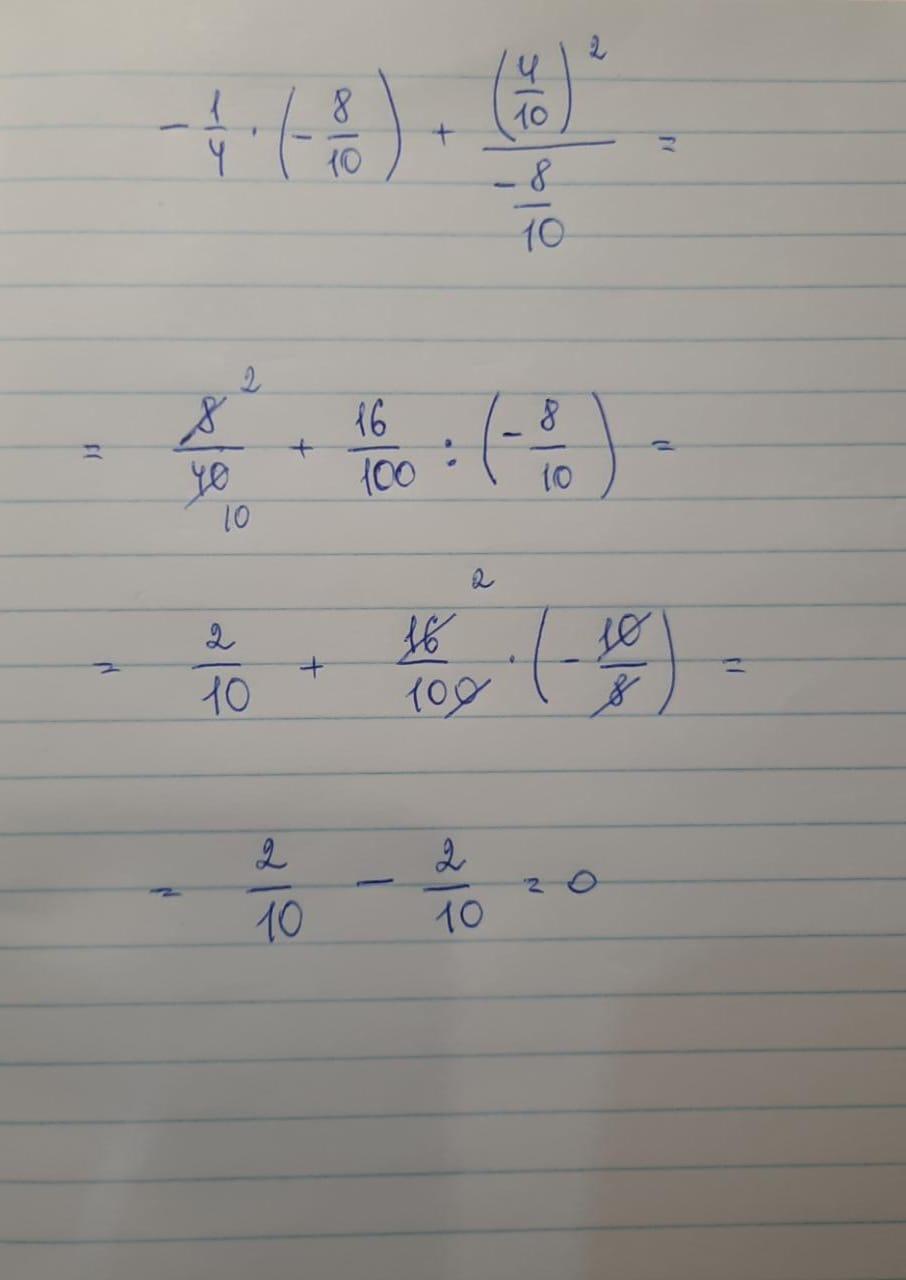 -1/4 · (-8/10) + (4/10)² / (-8/10) =
= 8̸ ² / 4̸0̸ 10 + 16/100 : (-8/10) =
= 2/10 + 1̸6̸ ² / 100̸ · (-1̸0̸/8̸) =
= 2/10 - 2/10 = 0